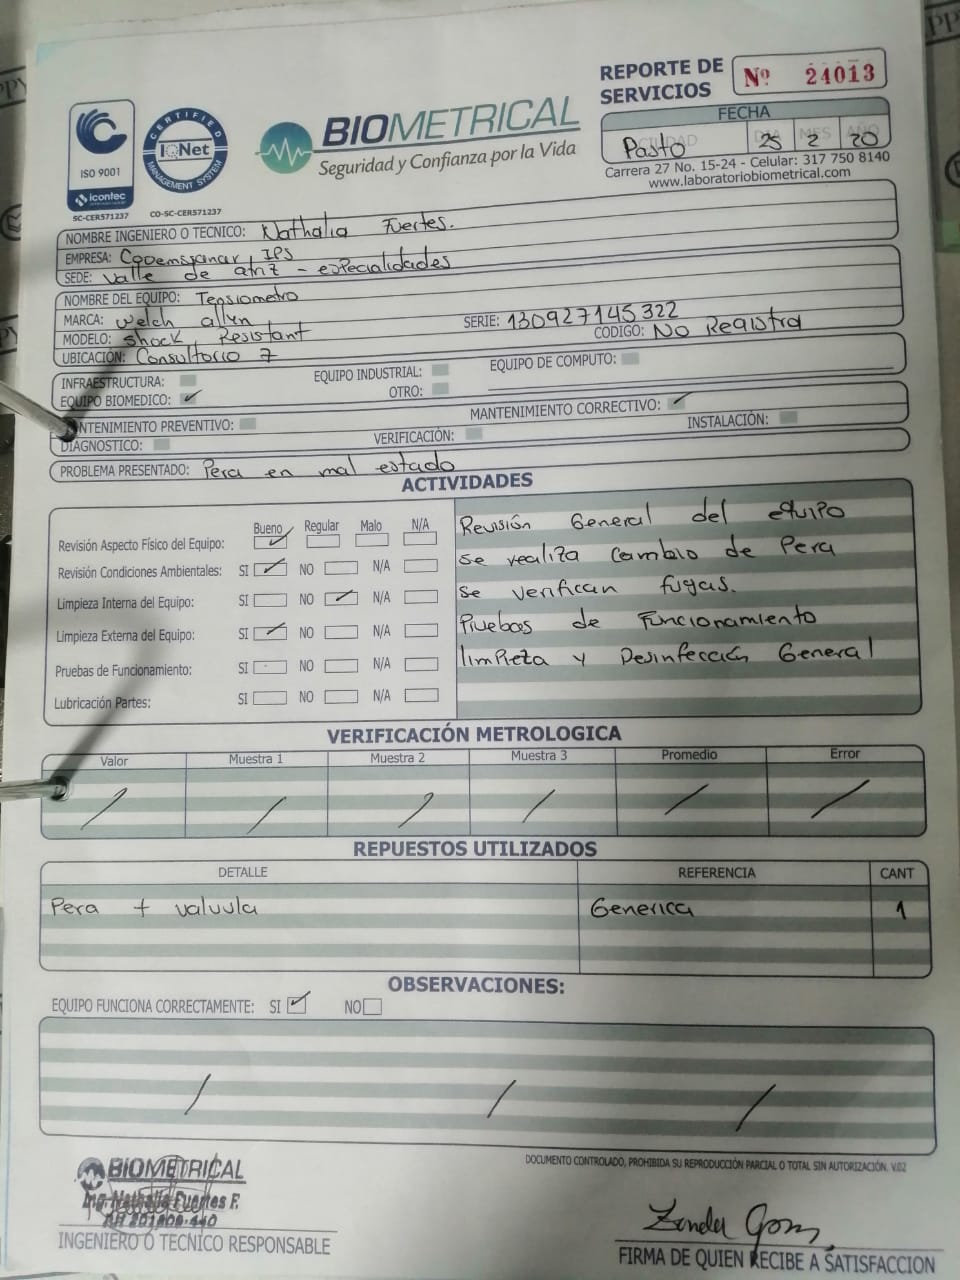 REPORTE DE SERVICIOS
Nº 24013
ISO 9001
icontec
SC-CER571237
CERTIFIED
IQNet
MANAGEMENT SYSTEM
CO-SC-CER571237
BIOMETRICAL
Seguridad y Confianza por la Vida
FECHA
Pasto 25 2 20
Carrera 27 No. 15-24 - Celular: 317 750 8140
www.laboratoriobiometrical.com
NOMBRE INGENIERO O TECNICO: Nathalia Fuertes.
EMPRESA: IPS
SEDE: Valle de atriz - especialidades
NOMBRE DEL EQUIPO: Tensiometro
MARCA: Welch allyn SERIE: 130927145322
MODELO: Shock Resistant CODIGO: No Registra
UBICACIÓN: Consultorio 7
INFRAESTRUCTURA: EQUIPO INDUSTRIAL: EQUIPO DE COMPUTO:
EQUIPO BIOMEDICO: ✓ OTRO:
MANTENIMIENTO PREVENTIVO: MANTENIMIENTO CORRECTIVO: ✓
DIAGNOSTICO: VERIFICACIÓN: INSTALACIÓN:
PROBLEMA PRESENTADO: Pera en mal estado
ACTIVIDADES
Bueno Regular Malo N/A
Revisión Aspecto Físico del Equipo: ✓
Revisión Condiciones Ambientales: SI ✓ NO N/A
Limpieza Interna del Equipo: SI NO ✓ N/A
Limpieza Externa del Equipo: SI ✓ NO N/A
Pruebas de Funcionamiento: SI NO N/A
Lubricación Partes: SI NO N/A
Revisión General del equipo
se realiza cambio de Pera
se verifican fugas.
Pruebas de Funcionamiento
limpieza y Desinfección General
VERIFICACIÓN METROLOGICA
Valor Muestra 1 Muestra 2 Muestra 3 Promedio Error
/ / / / / /
REPUESTOS UTILIZADOS
DETALLE REFERENCIA CANT
Pera + valvula Generica 1
OBSERVACIONES:
EQUIPO FUNCIONA CORRECTAMENTE: SI ✓ NO
/ / /
DOCUMENTO CONTROLADO, PROHIBIDA SU REPRODUCCIÓN PARCIAL O TOTAL SIN AUTORIZACIÓN. V.02
BIOMETRICAL
Ing. Nathalia Fuertes F.
INGENIERO O TECNICO RESPONSABLE
FIRMA DE QUIEN RECIBE A SATISFACCION